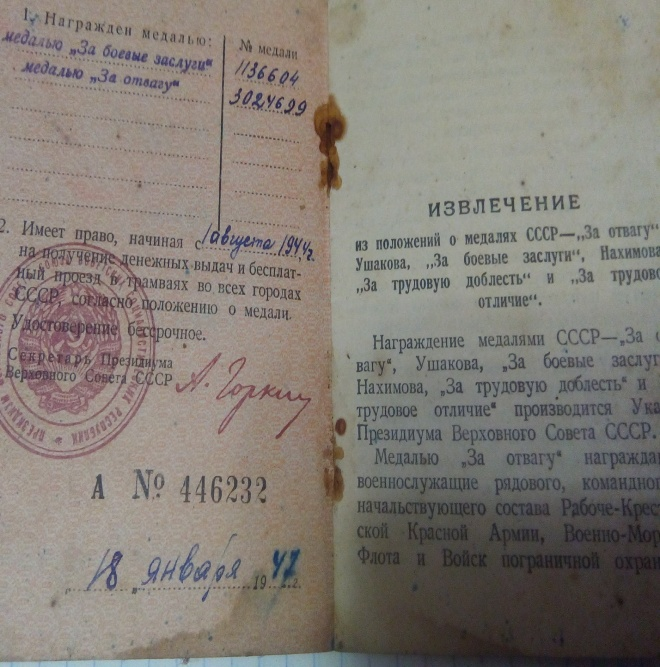 1. Награжден медалью:
№ медали
медалью „За боевые заслуги“
1136604
медалью „За отвагу“
3024699
2. Имеет право, начиная с 1 августа 1944 г.
на получение денежных выдач и бесплат-
ный проезд в трамваях во всех городах
СССР, согласно положению о медали.
Удостоверение бессрочное.
Секретарь Президиума
Верховного Совета СССР
А. Горкин
А № 446232
18 января 1947 г.
ИЗВЛЕЧЕНИЕ
из положений о медалях СССР—„За отвагу“
Ушакова, „За боевые заслуги“, Нахимова
„За трудовую доблесть“ и „За трудово
отличие“.
Награждение медалями СССР—„За о
вагу“, Ушакова, „За боевые заслуг
Нахимова, „За трудовую доблесть“ и
трудовое отличие“ производится Ука
Президиума Верховного Совета СССР.
Медалью „За отвагу“ награжда
военнослужащие рядового, командног
начальствующего состава Рабоче-Крест
ской Красной Армии, Военно-Мор
Флота и Войск пограничной охран